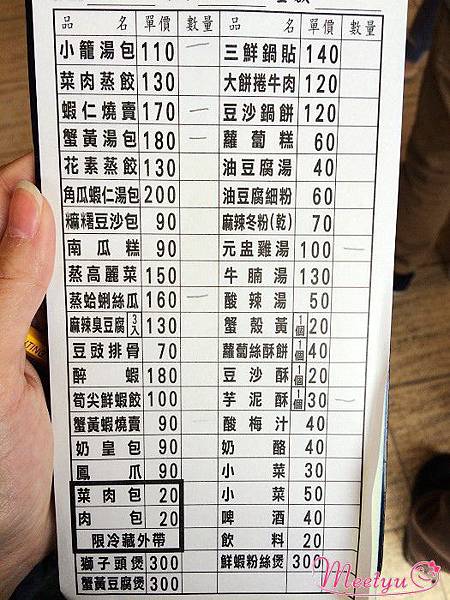 品名 單價 數量 品名 單價 數量
小籠湯包 110 一 三鮮鍋貼 140
菜肉蒸餃 130 大餅捲牛肉 120
蝦仁燒賣 170 一 豆沙鍋餅 120
蟹黃湯包 180 一 蘿蔔糕 60
花素蒸餃 130 油豆腐湯 40
角瓜蝦仁湯包 200 油豆腐細粉 60
糯糬豆沙包 90 麻辣冬粉(乾) 70
南瓜糕 90 元盅雞湯 100 一
蒸高麗菜 150 牛腩湯 130
蒸蛤蜊絲瓜 160 一 酸辣湯 50
麻辣臭豆腐 3入 130 蟹殼黃 1個 20
豆豉排骨 70 蘿蔔絲酥餅 1個 40
醉蝦 180 豆沙酥 1個 20
筍尖鮮蝦餃 100 芋泥酥 1個 30 一
蟹黃蝦燒賣 90 酸梅汁 40
奶皇包 90 奶酪 40
鳳爪 90 小菜 30
菜肉包 20 小菜 50
肉包 20 啤酒 40
限冷藏外帶 飲料 20
獅子頭煲 300 鮮蝦粉絲煲 300
蟹黃豆腐煲 300
Meeiyu